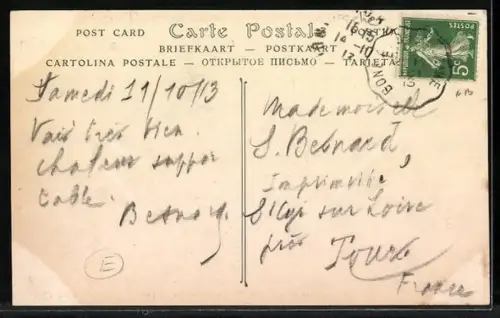 POST CARD Carte Postale
BRIEFKAART — POSTKARTE
CARTOLINA POSTALE — ОТКРЫТОЕ ПИСЬМО — TARJETA
POSTES
5c
15
14-10
13
BONE
Samedi 11/10/13
Vais très bien.
chaleur suppor
table.
Besnard
E
Mademoiselle
S. Besnard,
Imprimerie,
St Cyr sur Loire
près Tours
France